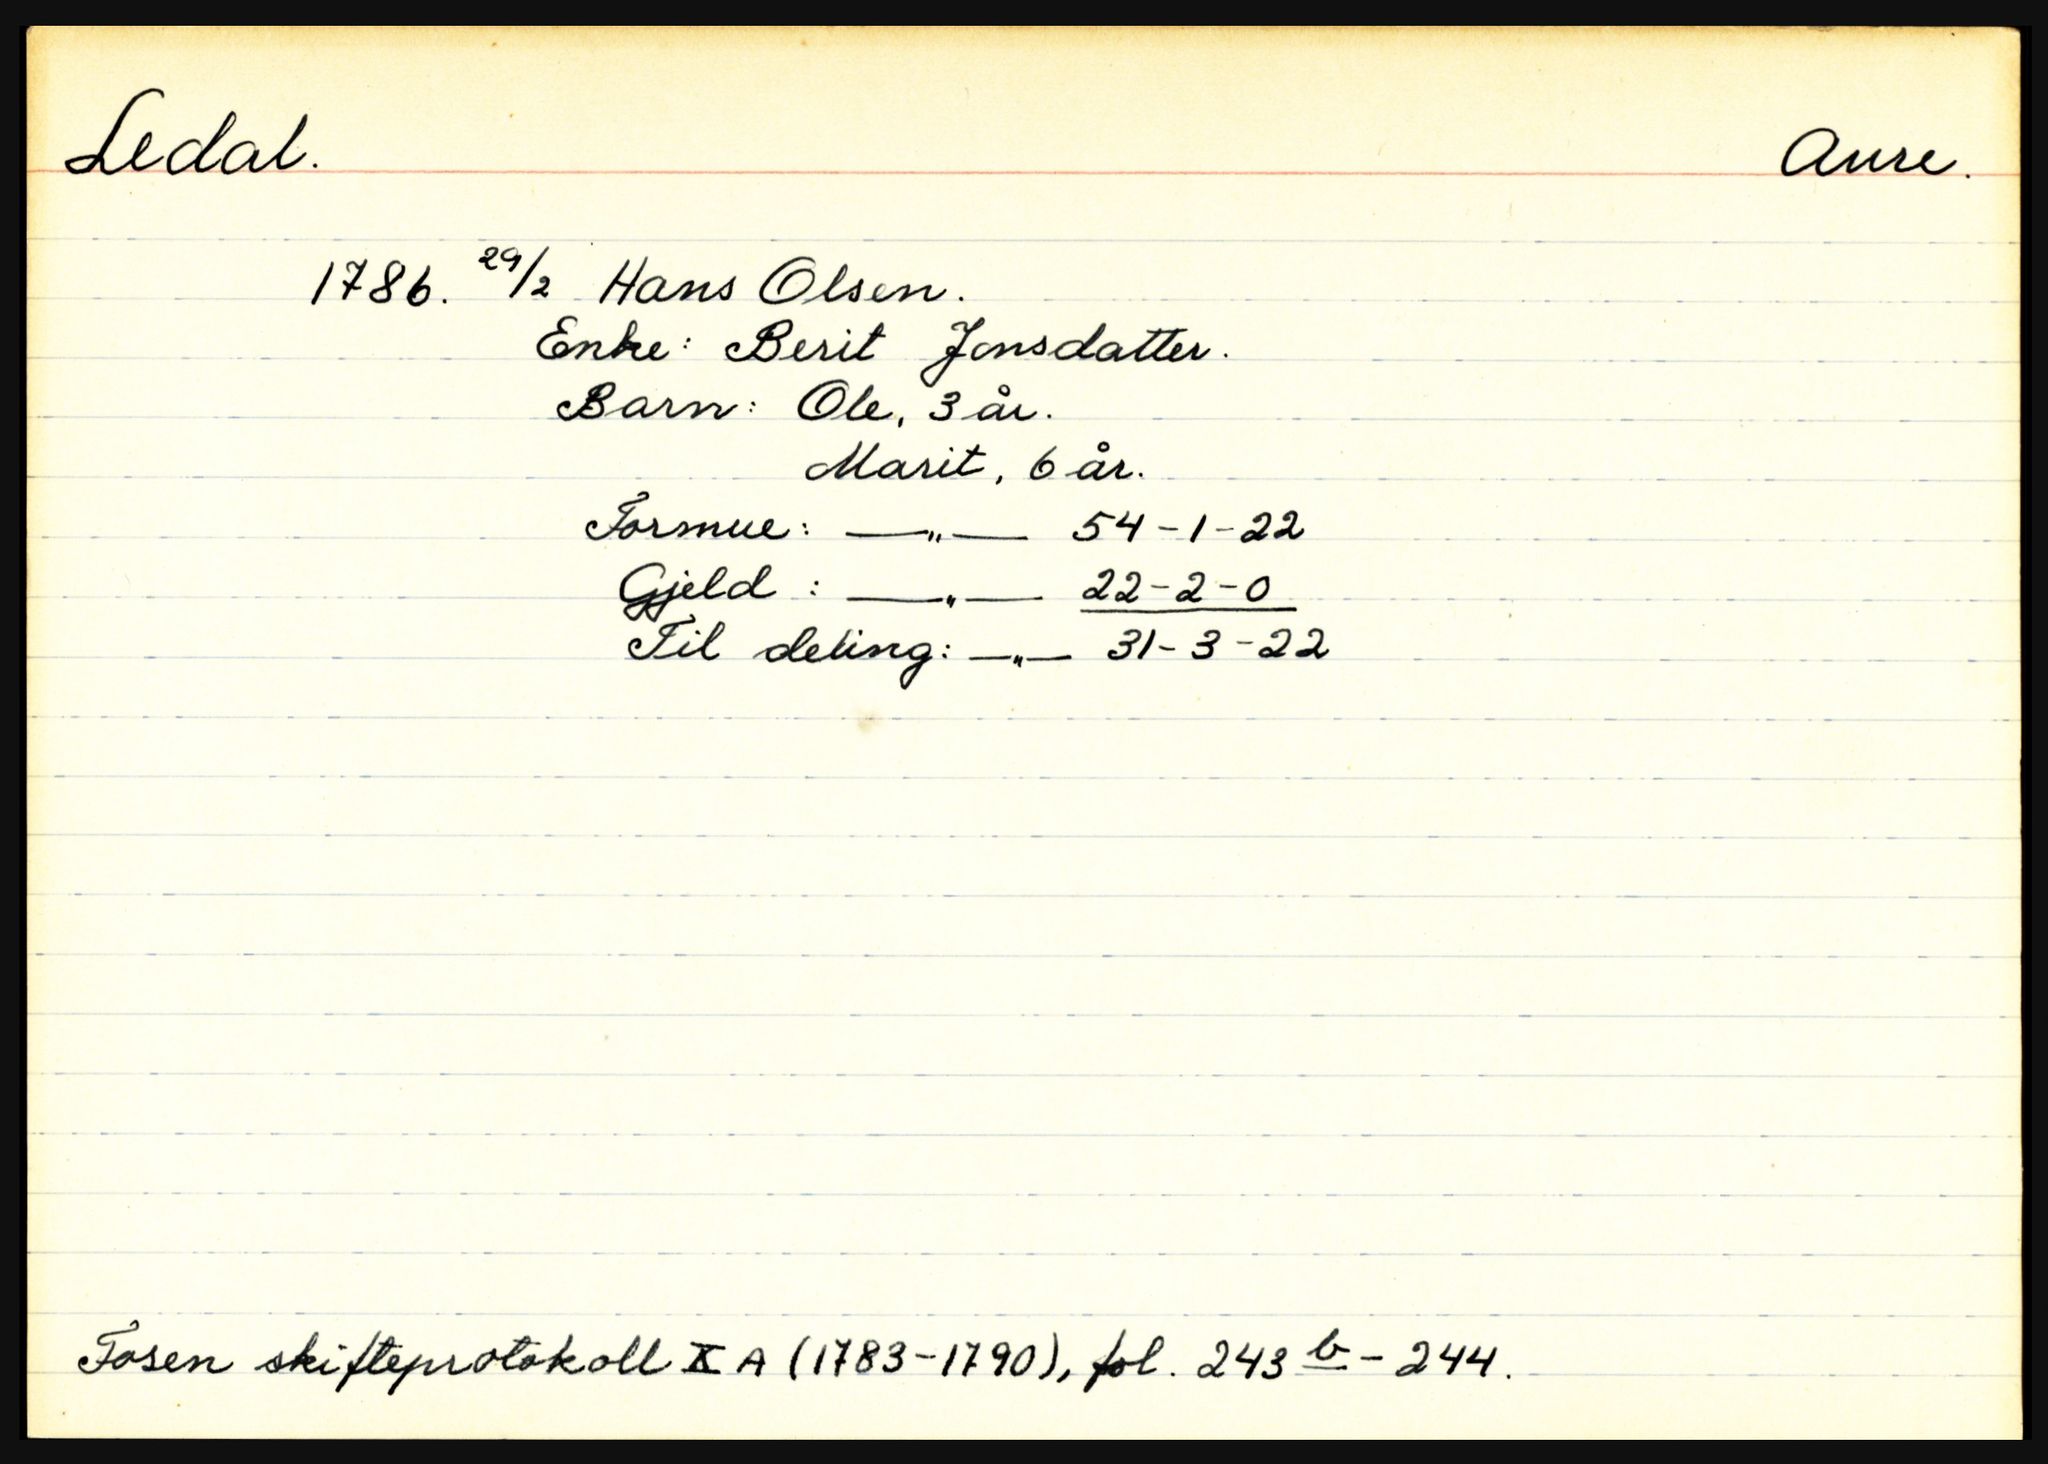 Ledal. Aure.
1786. 29/2 Hans Olsen.
Enke: Berit Jonsdatter.
Barn: Ole, 3 år.
Marit, 6 år.
Formue: —„— 54-1-22
Gjeld : —„— 22-2-0
Til deling: —„— 31-3-22
Fosen skifteprotokoll X A (1783-1790), fol. 243 b - 244.